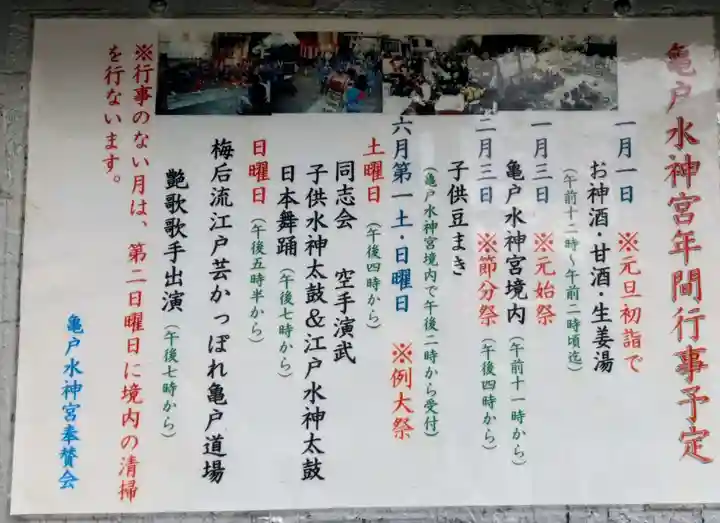 亀戸水神宮年間行事予定
一月一日 ※元旦初詣で
お神酒・甘酒・生姜湯
(午前十二時〜午前二時頃迄)
一月三日 ※元始祭
亀戸水神宮境内 (午前十一時から)
二月三日 ※節分祭 (午後四時から)
子供豆まき
(亀戸水神宮境内で午後二時から受付)
六月第一土・日曜日 ※例大祭
土曜日 (午後四時から)
同志会 空手演武
子供水神太鼓&江戸水神太鼓
日本舞踊 (午後七時から)
日曜日 (午後五時半から)
梅后流江戸芸かっぽれ亀戸道場
艶歌歌手出演 (午後七時から)
※行事のない月は、第二日曜日に境内の清掃
を行ないます。
亀戸水神宮奉賛会